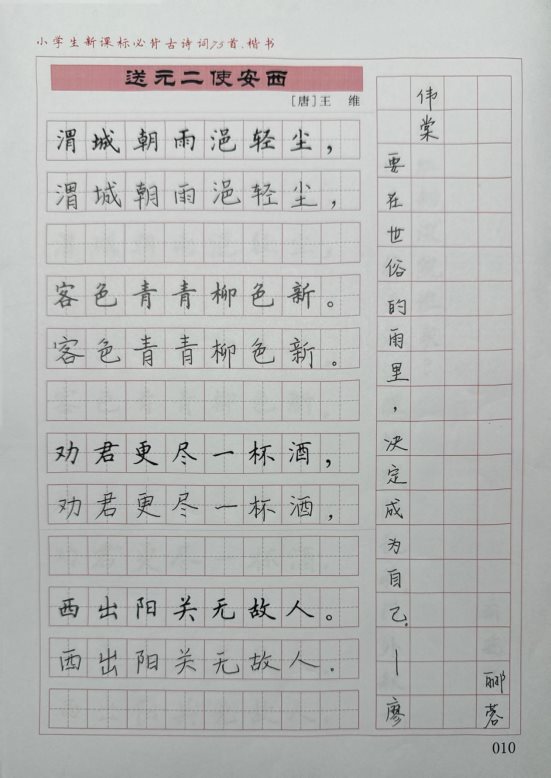 小学生新课标必背古诗词75首.楷书
送元二使安西
[唐]王 维
渭城朝雨浥轻尘，
渭城朝雨浥轻尘，
客色青青柳色新。
客色青青柳色新。
劝君更尽一杯酒，
劝君更尽一杯酒，
西出阳关无故人。
西出阳关无故人.
要在世俗的雨里，决定成为自己.—廖
伟棠
郦蓉
010